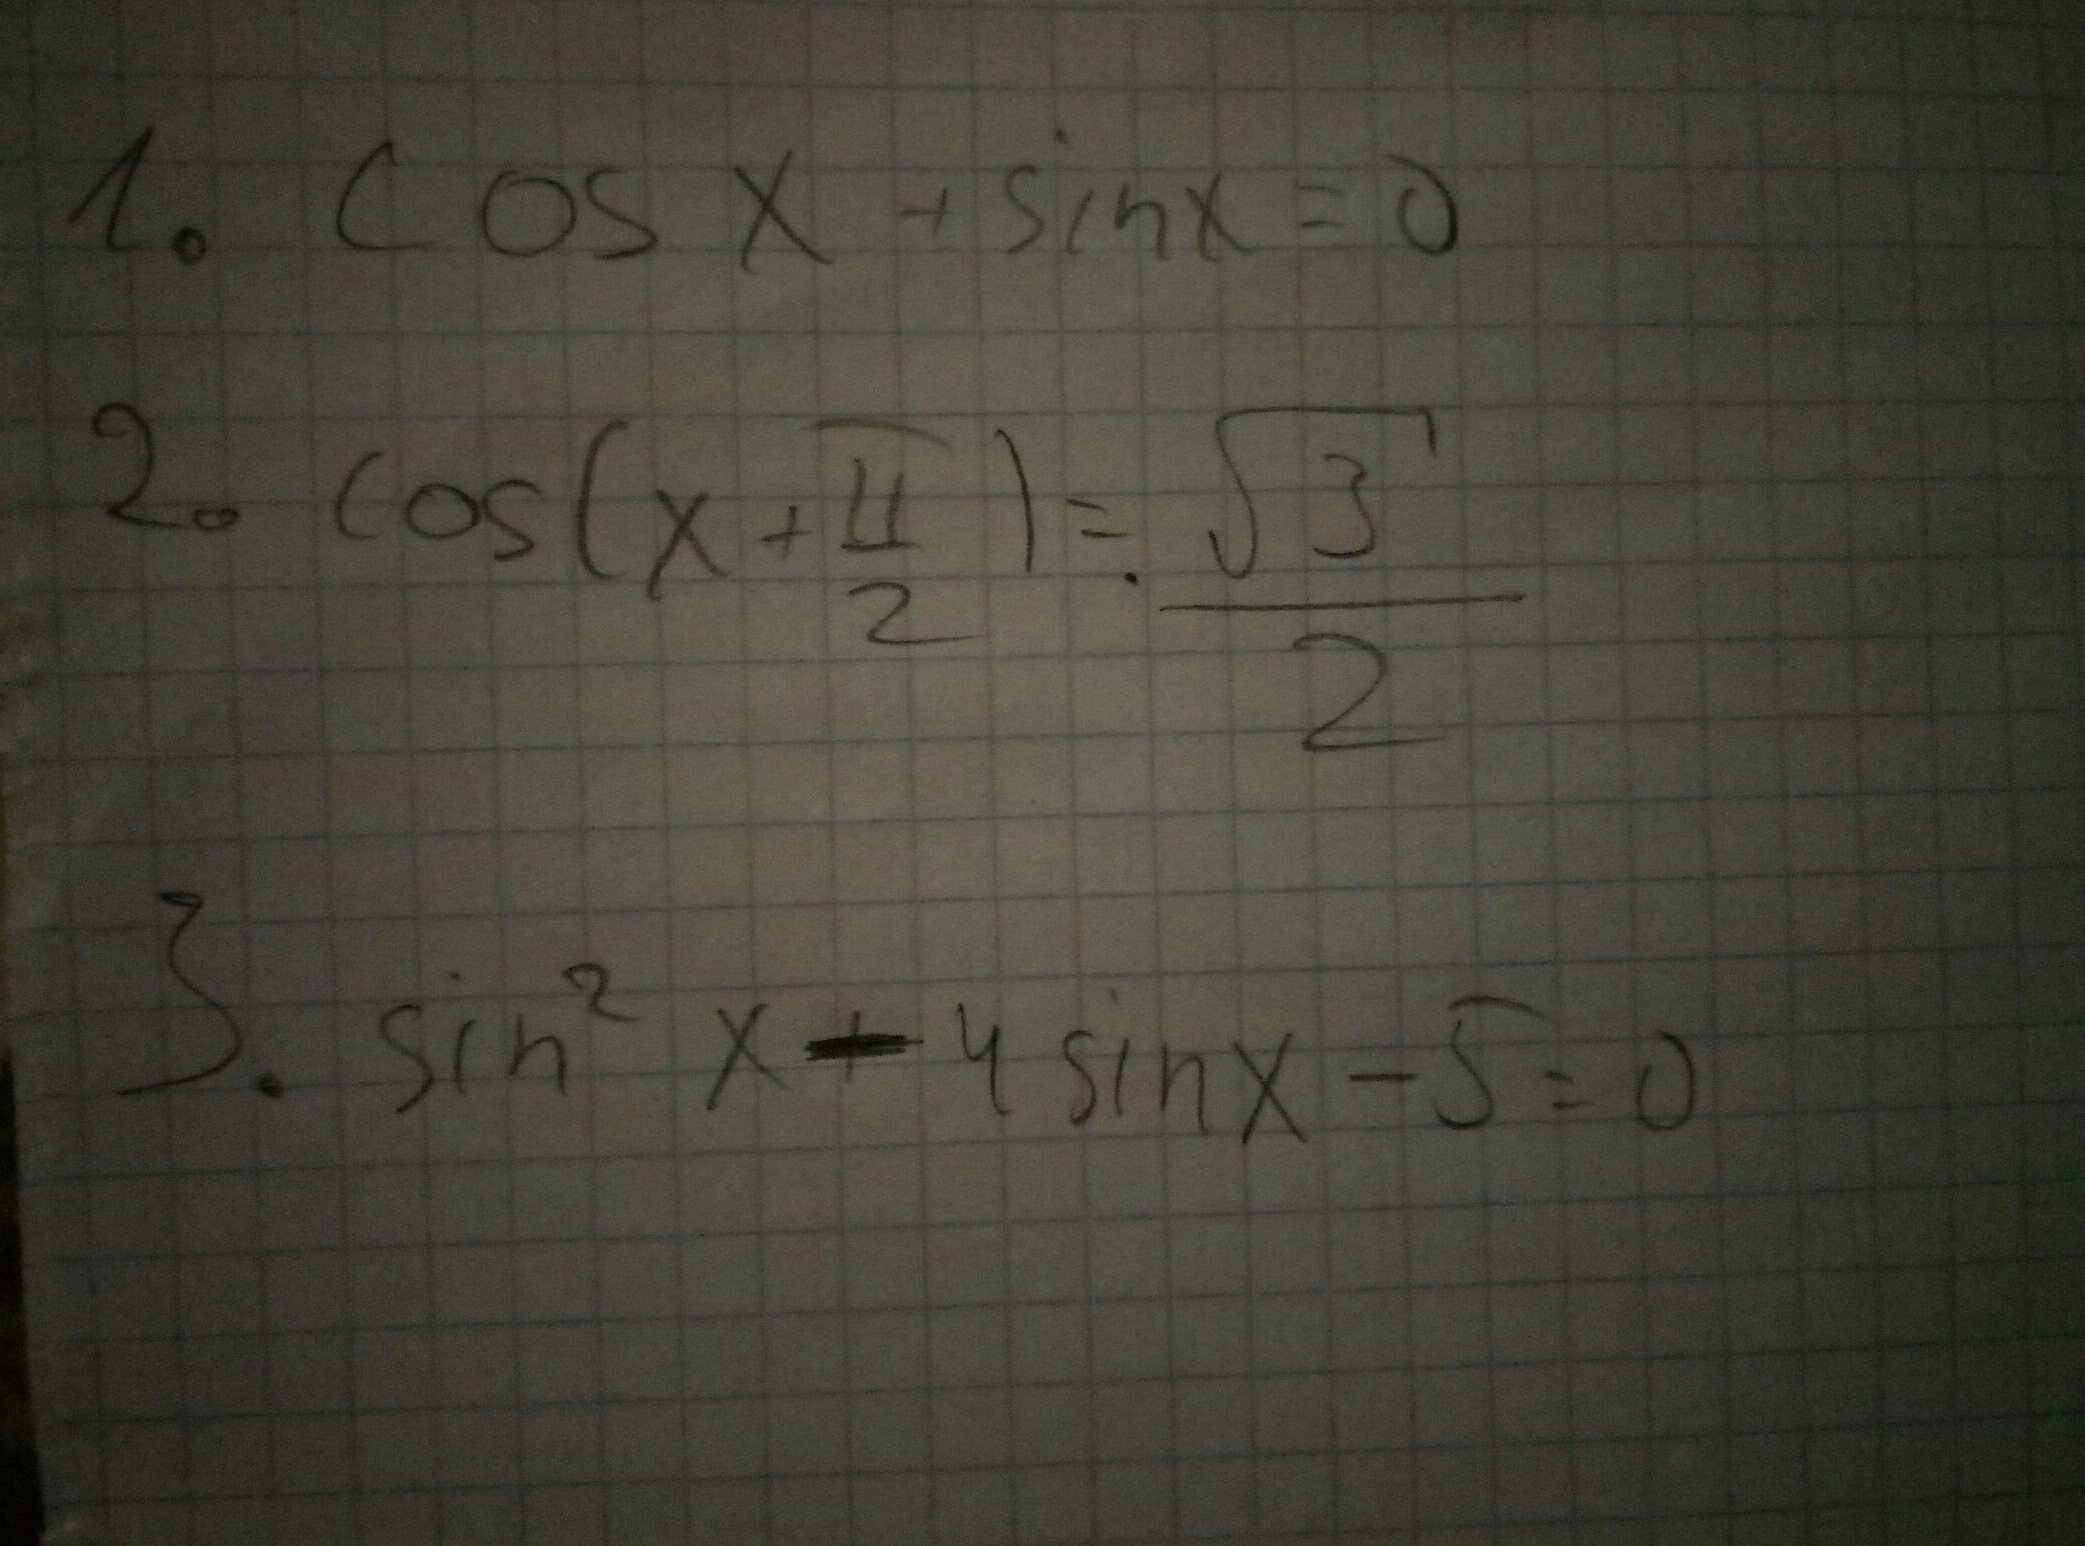 1. cos x + sinx = 0
2. cos(x + π/2) = √3/2
3. sin² x - 4 sinx - 5 = 0